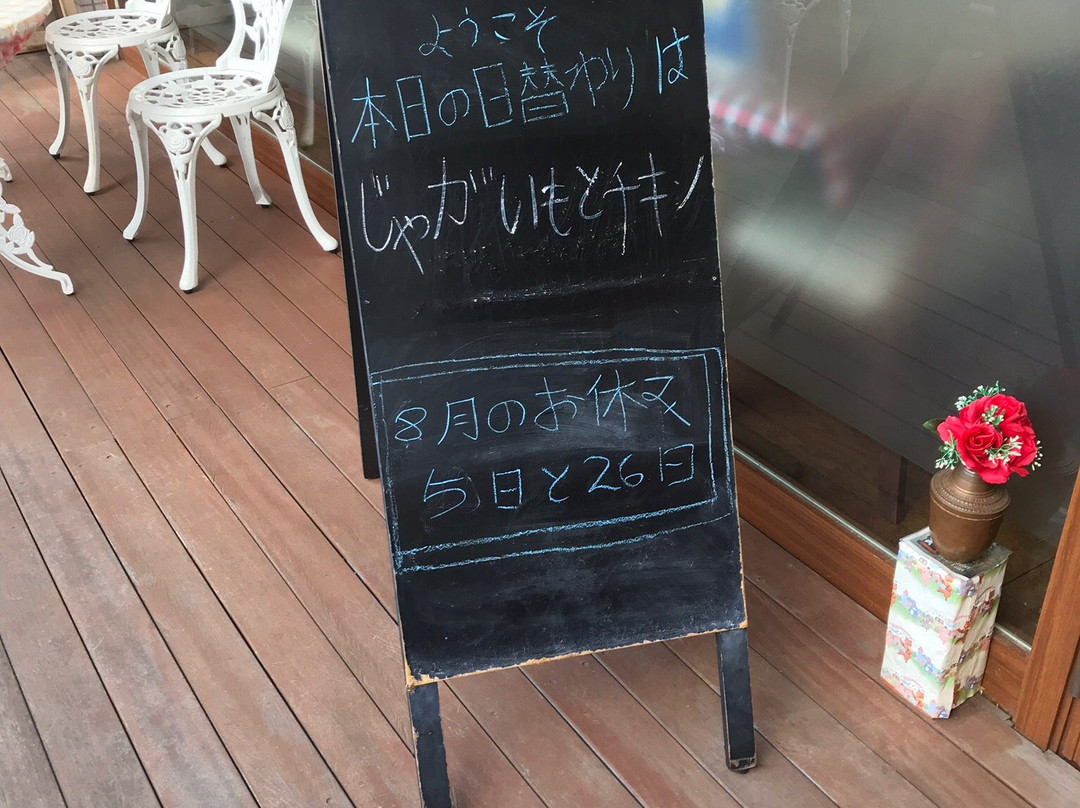 ようこそ
本日の日替わりは
じゃがいもとチキン
8月のお休み
5日と26日